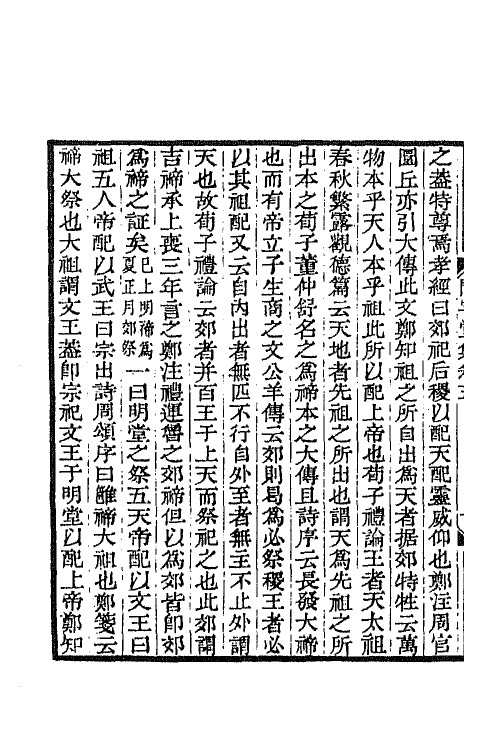 之葢特尊焉孝經曰郊祀后稷以配天配靈威仰也鄭注周官
圜丘亦引大傳此文鄭知祖之所自出爲天者据郊特牲云萬
物本乎天人本乎祖此所以配上帝也荀子禮論王者天太祖
春秋繁露觀德篇云天地者先祖之所出也謂天爲先祖之所
出本之荀子董仲舒名之爲禘本之大傳且詩序云長發大禘
也而有帝立子生商之文公羊傳云郊則曷爲必祭稷王者必
以其祖配又云自內出者無匹不行自外至者無主不止外謂
天也故荀子禮論云郊者并百王于上天而祭祀之也此郊謂
吉禘承上喪三年言之鄭注禮運魯之郊禘但以爲郊皆卽郊
爲禘之証矣巳上明禘爲夏正月郊祭一曰明堂之祭五天帝配以文王曰
祖五人帝配以武王曰宗出詩周頌序曰雝禘大祖也鄭箋云
禘大祭也大祖謂文王葢卽宗祀文王于明堂以配上帝鄭知